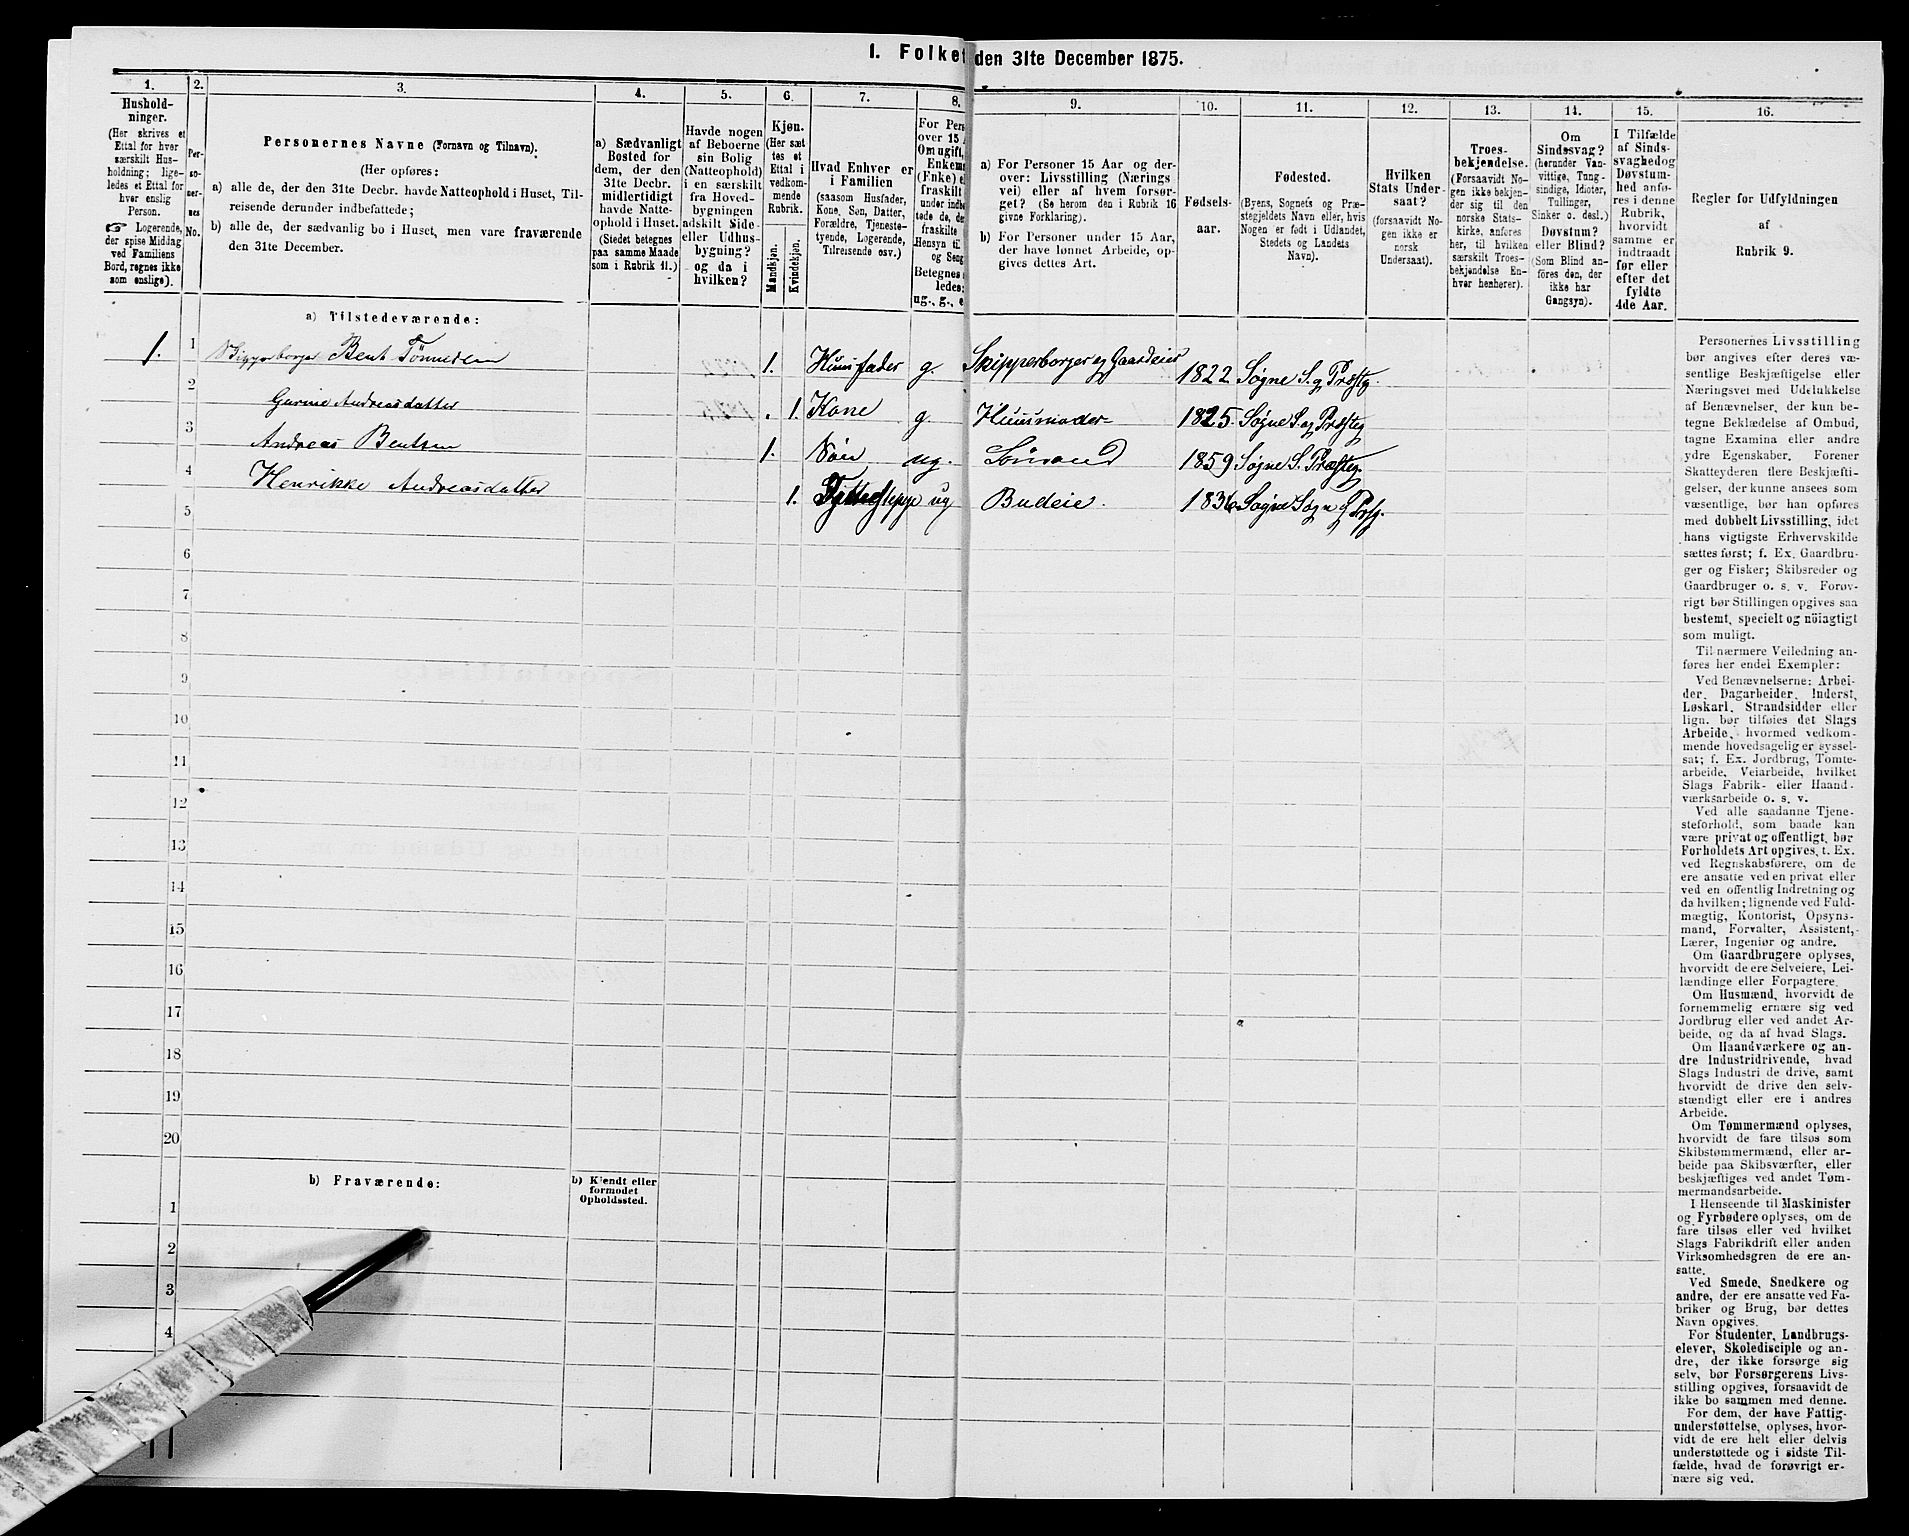 I. Folket
den 31te December 1875.
1.
Hushold-
ninger.
(Her skrives et
Ettal for hver
særskilt Hus-
holdning; lige-
ledes et Ettal for
hver enslig
Person.
☞ Logerende,
der spise Middag
ved Familiens
Bord, regnes ikke
som enslige).
2.
Per-
so-
ner-
nes
No.
3.
Personernes Navne (Fornavn og Tilnavn).
(Her opføres:
a) alle de, der den 31te Decbr. havde Natteophold i Huset, Til-
reisende derunder indbefattede;
b) alle de, der sædvanlig bo i Huset, men vare fraværende
den 31te December.
4.
a) Sædvanligt
Bosted for
dem, der den
31te Decbr.
midlertidigt
havde Natte-
ophold i Huset.
(Stedet betegnes
paa samme Maade
som i Rubrik 11.)
5.
Havde nogen
af Beboerne
sin Bolig
(Natteophold)
i en særskilt
fra Hoved-
bygningen
adskilt Side-
eller Udhus-
bygning?
og da i
hvilken?
6.
Kjøn.
(Her sæt
tes et
Ettal i
vedkom-
mende
Rubrik.
Mandkjøn.
Kvindekjøn.
7.
Hvad Enhver er
i Familien
(saasom Husfader,
Kone, Søn, Datter,
Forældre, Tjeneste-
tyende, Logerende,
Tilreisende osv.)
8.
For Pers
over 15 A
Om ugift,
Enkem
(Fnke) e
fraskilt
under indb
tede de, de
fraskilte
Hensyn til
og Seng
Betegnes s
ledes:
ug., g., e
9.
a) For Personer 15 Aar og der-
over: Livsstilling (Nærings
vei) eller af hvem forsør-
get? (Se herom den i Rubrik 16
givne Forklaring).
b) For Personer under 15 Aar,
der have lønnet Arbeide, op-
gives dettes Art.
10.
Fødsels-
aar.
11.
Fødested.
(Byens, Sognets og Præ-
stegjeldets Navn eller, hvis
Nogen er født i Udlandet,
Stedets og Landets
Navn).
12.
Hvilken
Stats Under-
saat?
(forsaavidt No-
gen ikke er
norsk
Undersaat).
13.
Troes-
bekjendelse.
(Forsaavidt No-
gen ikke bekjen-
der sig til den
norske Stats-
kirke, anføres
her, til hvilken
særskilt Troes-
bekjendelse En-
hver henhører).
14.
Om
Sindssvag?
(herunder Van-
vittige, Tung-
sindige, Idioter,
Tullinger,
Sinker o. desl.)
Døvstum?
eller Blind?
(Som Blind an-
føres den, der
ikke har
Gangsyn).
15.
I Tilfælde
af Sinds-
svaghedog
Døvstum-
hed anfø-
res i denne
Rubrik,
hvorvidt
samme er
indtraadt
før eller
efter det
fyldte
4de Aar.
16.
Regler for Udfyldningen
af
Rubrik 9.
a) Tilstedeværende:
1. 1 Skipperborger Bent Tønnesen 1822 1. Huusfader g. Skipperborger og Gaardeier 1822 Søgne S. og Præstg.
2 Gurine Andreasdatter 1825 1. Kone g. Huusmoder 1825. Søgne S. og Præsteg
3 Andreas Bentsen 1. Søn ug. Sømand 1859 Søgne S. Præsteg.
4 Henrikke Andreasdatter 1. ug Budeie. 1836 Søgne Sogn og Prstg.
5
6
7
8
9
10
11
12
13
14
15
16
17
18
19
20
b) Fraværende:
b) Kjendt eller
formodet
Opholdssted.
1
2
3
4
Personernes Livsstilling
bør angives efter deres væ-
sentlige Beskjæftigelse eller
Næringsvei med Udelukkelse
af Benævnelser, der kun be-
tegne Beklædelse af Ombud,
tagne Examina eller andre
ydre Egenskaber. Forener
Skatteyderen flere Beskjæfti-
gelser, der kunne ansees som
væsentlige, bør han opføres
med dobbelt Livsstilling, idet
hans vigtigste Erhvervskilde
sættes først; f. Ex. Gaardbru-
ger og Fisker; Skibsreder og
Gaardbruger o. s. v. Forøv-
rigt bør Stillingen opgives saa
bestemt, specielt og nöiagtigt
som muligt.
Til nærmere Veiledning an-
føres her endel Exempler:
Ved Benævnelserne: Arbei-
der, Dagarbeider, Inderst,
Løskarl, Strandsidder eller
lign. bør tilføies det Slags
Arbeide, hvormed vedkom-
mende hovedsagelig er syssel-
sat; f. Ex. Jordbrug, Tomte-
arbeide, Veiarbeide, hvilket
Slags Fabrik- eller Haand-
værksarbeide o. s. v.
Ved alle saadanne Tjene-
steforhold, som baade kan
være privat og offentligt, bør
Forholdets Art opgives, t. Ex.
ved Regnskabsførere, om de
ere ansatte ved en privat eller
ved en offentlig Indretning og
da hvilken; lignende ved Fuld-
mægtig, Kontorist, Opsyns-
mand, Forvalter, Assistent,
Lærer, Ingeniør og andre.
Om Gaardbrugere oplyses,
hvorvidt de ere Selveiere, Lei-
lændinge eller Forpagtere.
Om Husmænd, hvorvidt de
fornemmelig ernære sig ved
Jordbrug eller ved andet Ar-
beide, og da af hvad Slags.
Om Haandværkere og an-
dre Industridrivende, hvad
Slags Industri de drive, samt
hvorvidt de drive den selv-
stændigt eller ere i andres
Arbeide.
Om Tømmermænd oplyses,
hvorvidt de fare tilsøs som
Skibstømmermænd, eller ar-
beide paa Skibsværfter, eller
beskjæftiges ved andet Tøm-
mermandsarbeide.
I Henseende til Maskinister
og Fyrbødere oplyses, om de
fare tilsøs eller ved hvilket
Slags Fabrikdrift eller anden
Virksomhedsgren de ere an-
satte.
Ved Smede, Snedkere og
andre, der ere ansatte ved Fa-
briker og Brug, bør dettes
Navn opgives.
For Studenter, Landbrugs-
elever, Skoledisciple og an-
dre, der ikke forsørge sig
selv, bør Forsørgerens Livs-
stilling opgives, forsaavidt de
ikke bo sammen med denne.
For dem, der have Fattig-
understøttelse, oplyses, hvor-
vidt de ere helt eller delvis
understøttede og i sidste Til-
fælde, hvad de forøvrigt er-
nære sig ved.